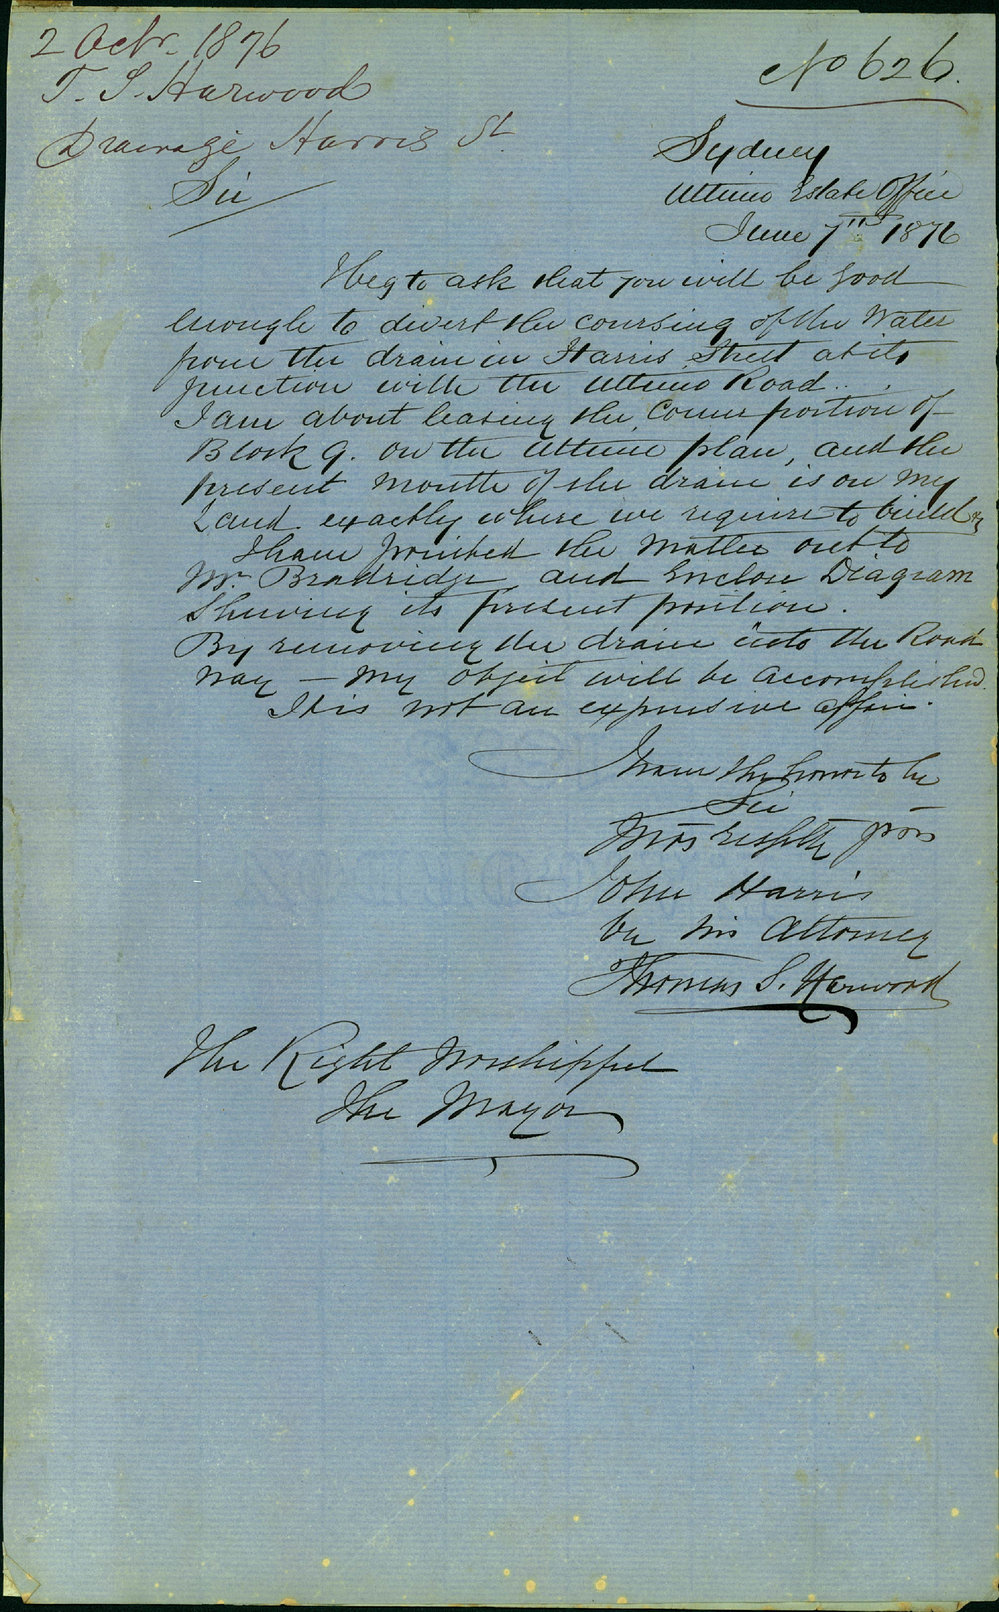 2 Octr. 1876
T. S. Harwood
Drainage Harris St.
No 626.
Sydney
Ultimo Estate Office
June 7th 1876
Sir
I beg to ask that you will be good
enough to divert the coursing of the Water
from the drain in Harris Street at its
junction with the Ultimo Road..
I am about leasing the Corner portion of
Block 9. on the Ultimo plan, and the
present mouth of the drain is on my
Land exactly where we require to build
I have pointed the matter out to
Mr Bradridge, and Enclose Diagram
Shewing its present position.
By removing the drain into the Road
way — my object will be accomplished.
It is not an expensive affair.
I have the honor to be
Sir
John Harris
by his Attorney
Thomas S. Harwood
The Right Worshipful
The Mayor